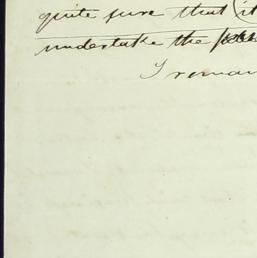 quite sure that (it
undertake the
I remain